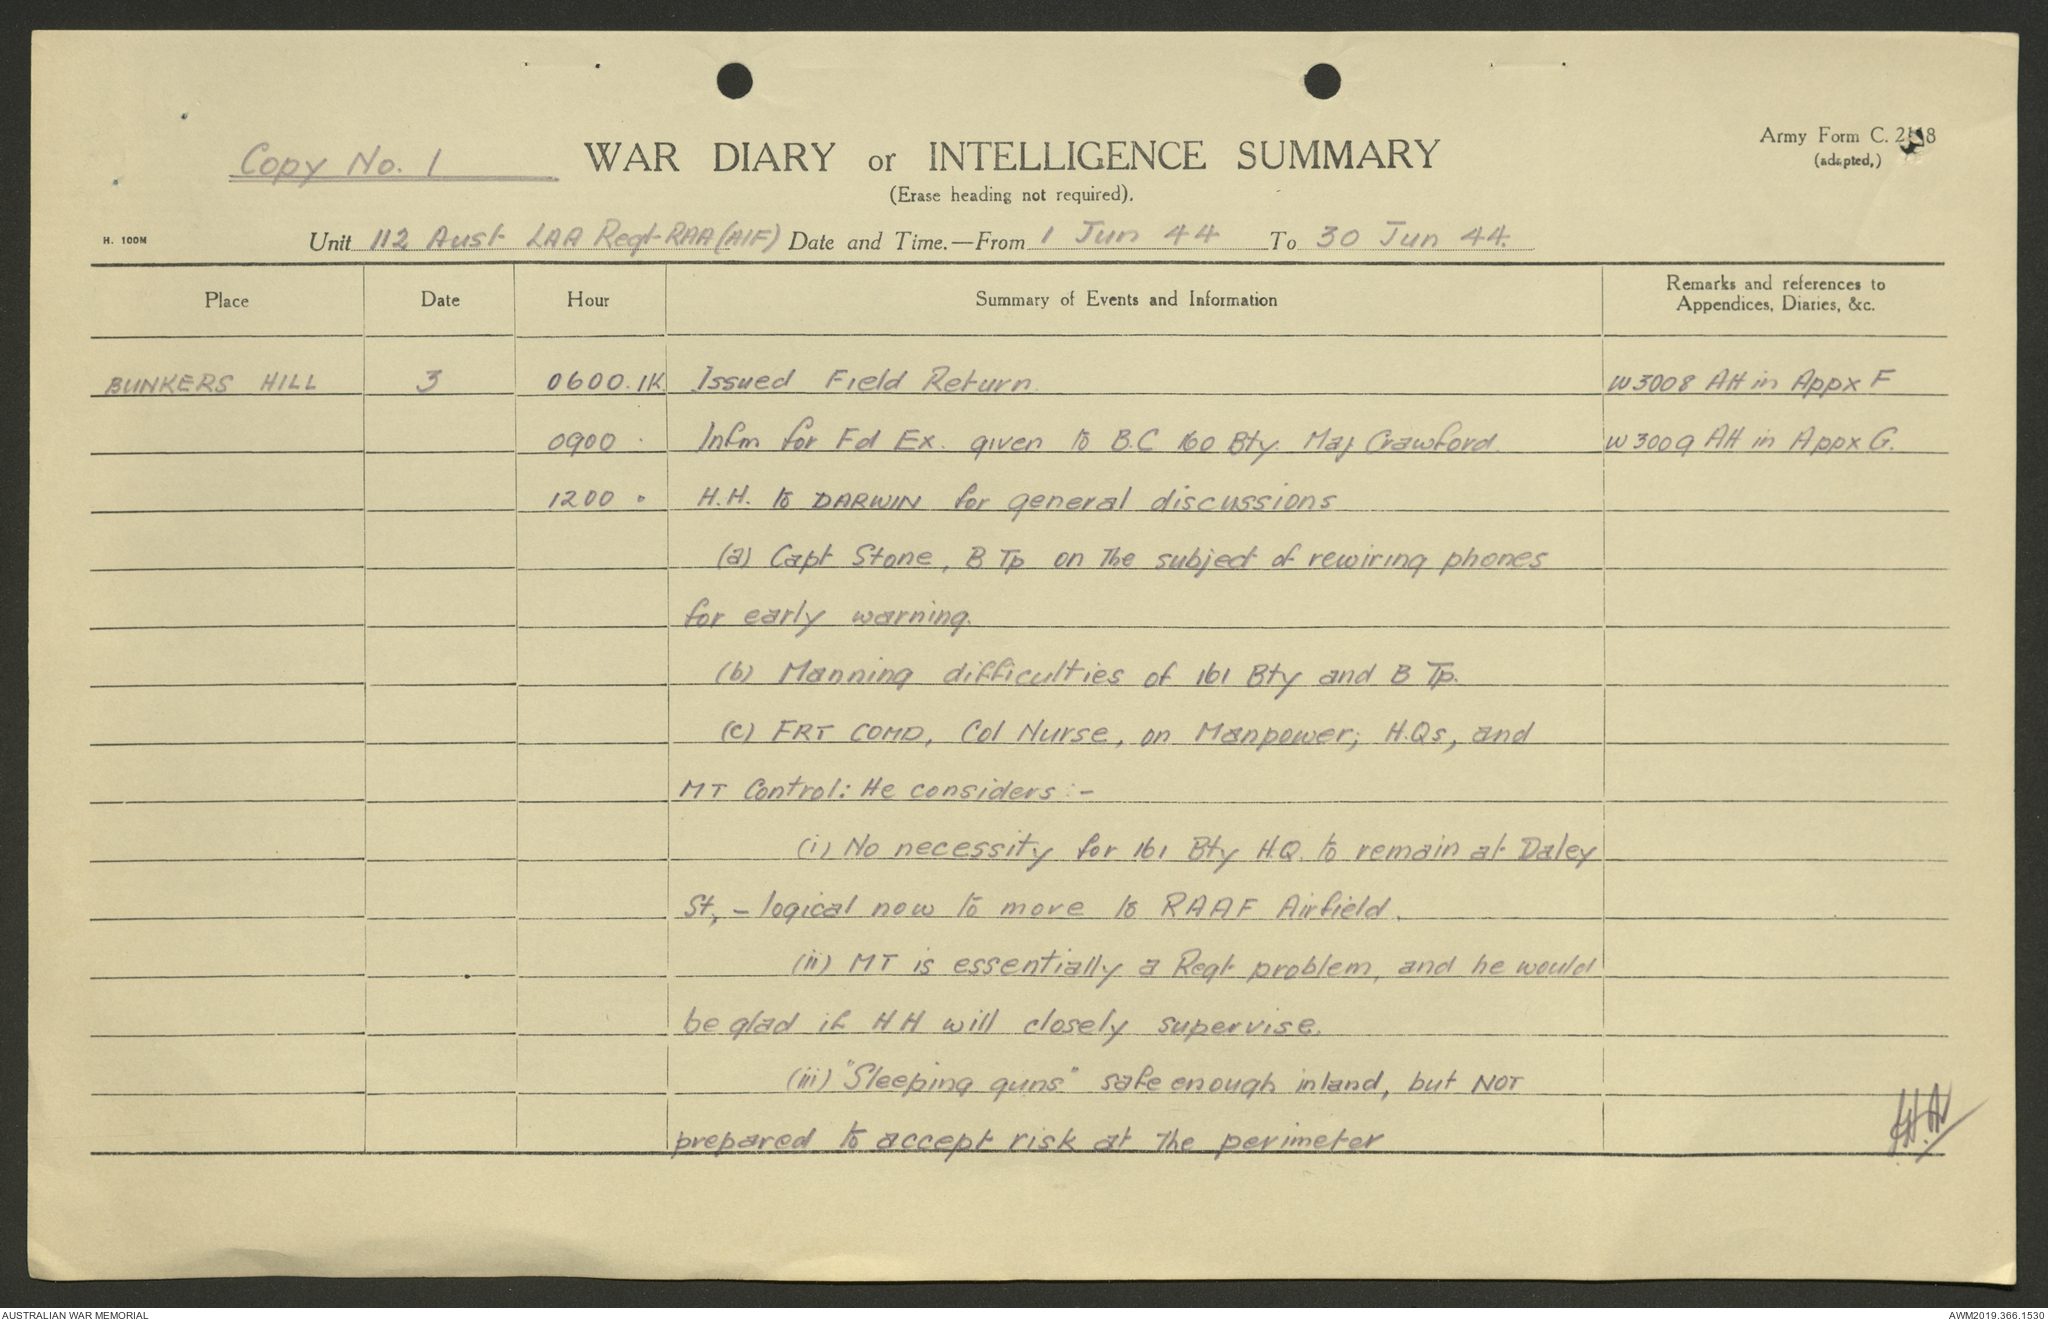 Copy No. 1
WAR DIARY or INTELLIGENCE SUMMARY
(Erase heading not required).
Army Form C. 2118
(adapted,)
H. 100M
Unit 112 Aust LAA Regt RAA (AIF) Date and Time.—From 1 Jun 44 To 30 Jun 44.
Place Date Hour Summary of Events and Information Remarks and references to
Appendices, Diaries, &c.
BUNKERS HILL 3 0600.IK Issued Field Return. W3008 Att in Appx F
0900 " Infm for Fd Ex. given to B.C 160 Bty. Maj Crawford. W3009 Att in Appx G.
1200 " H.H. to DARWIN for general discussions
(a) Capt Stone, B Tp on the subject of rewiring phones
for early warning.
(b) Manning difficulties of 161 Bty and B Tp.
(c) FRT COMD, Col Nurse, on Manpower; H.Qs, and
MT Control: He considers :-
(i) No necessity for 161 Bty H.Q. to remain at Daley
St, - logical now to move to RAAF Airfield.
(ii) MT is essentially a Regt problem, and he would
be glad if HH will closely supervise.
(iii) "Sleeping guns" safe enough inland, but NOT
prepared to accept risk at the perimeter
AUSTRALIAN WAR MEMORIAL
AWM2019.366.1530